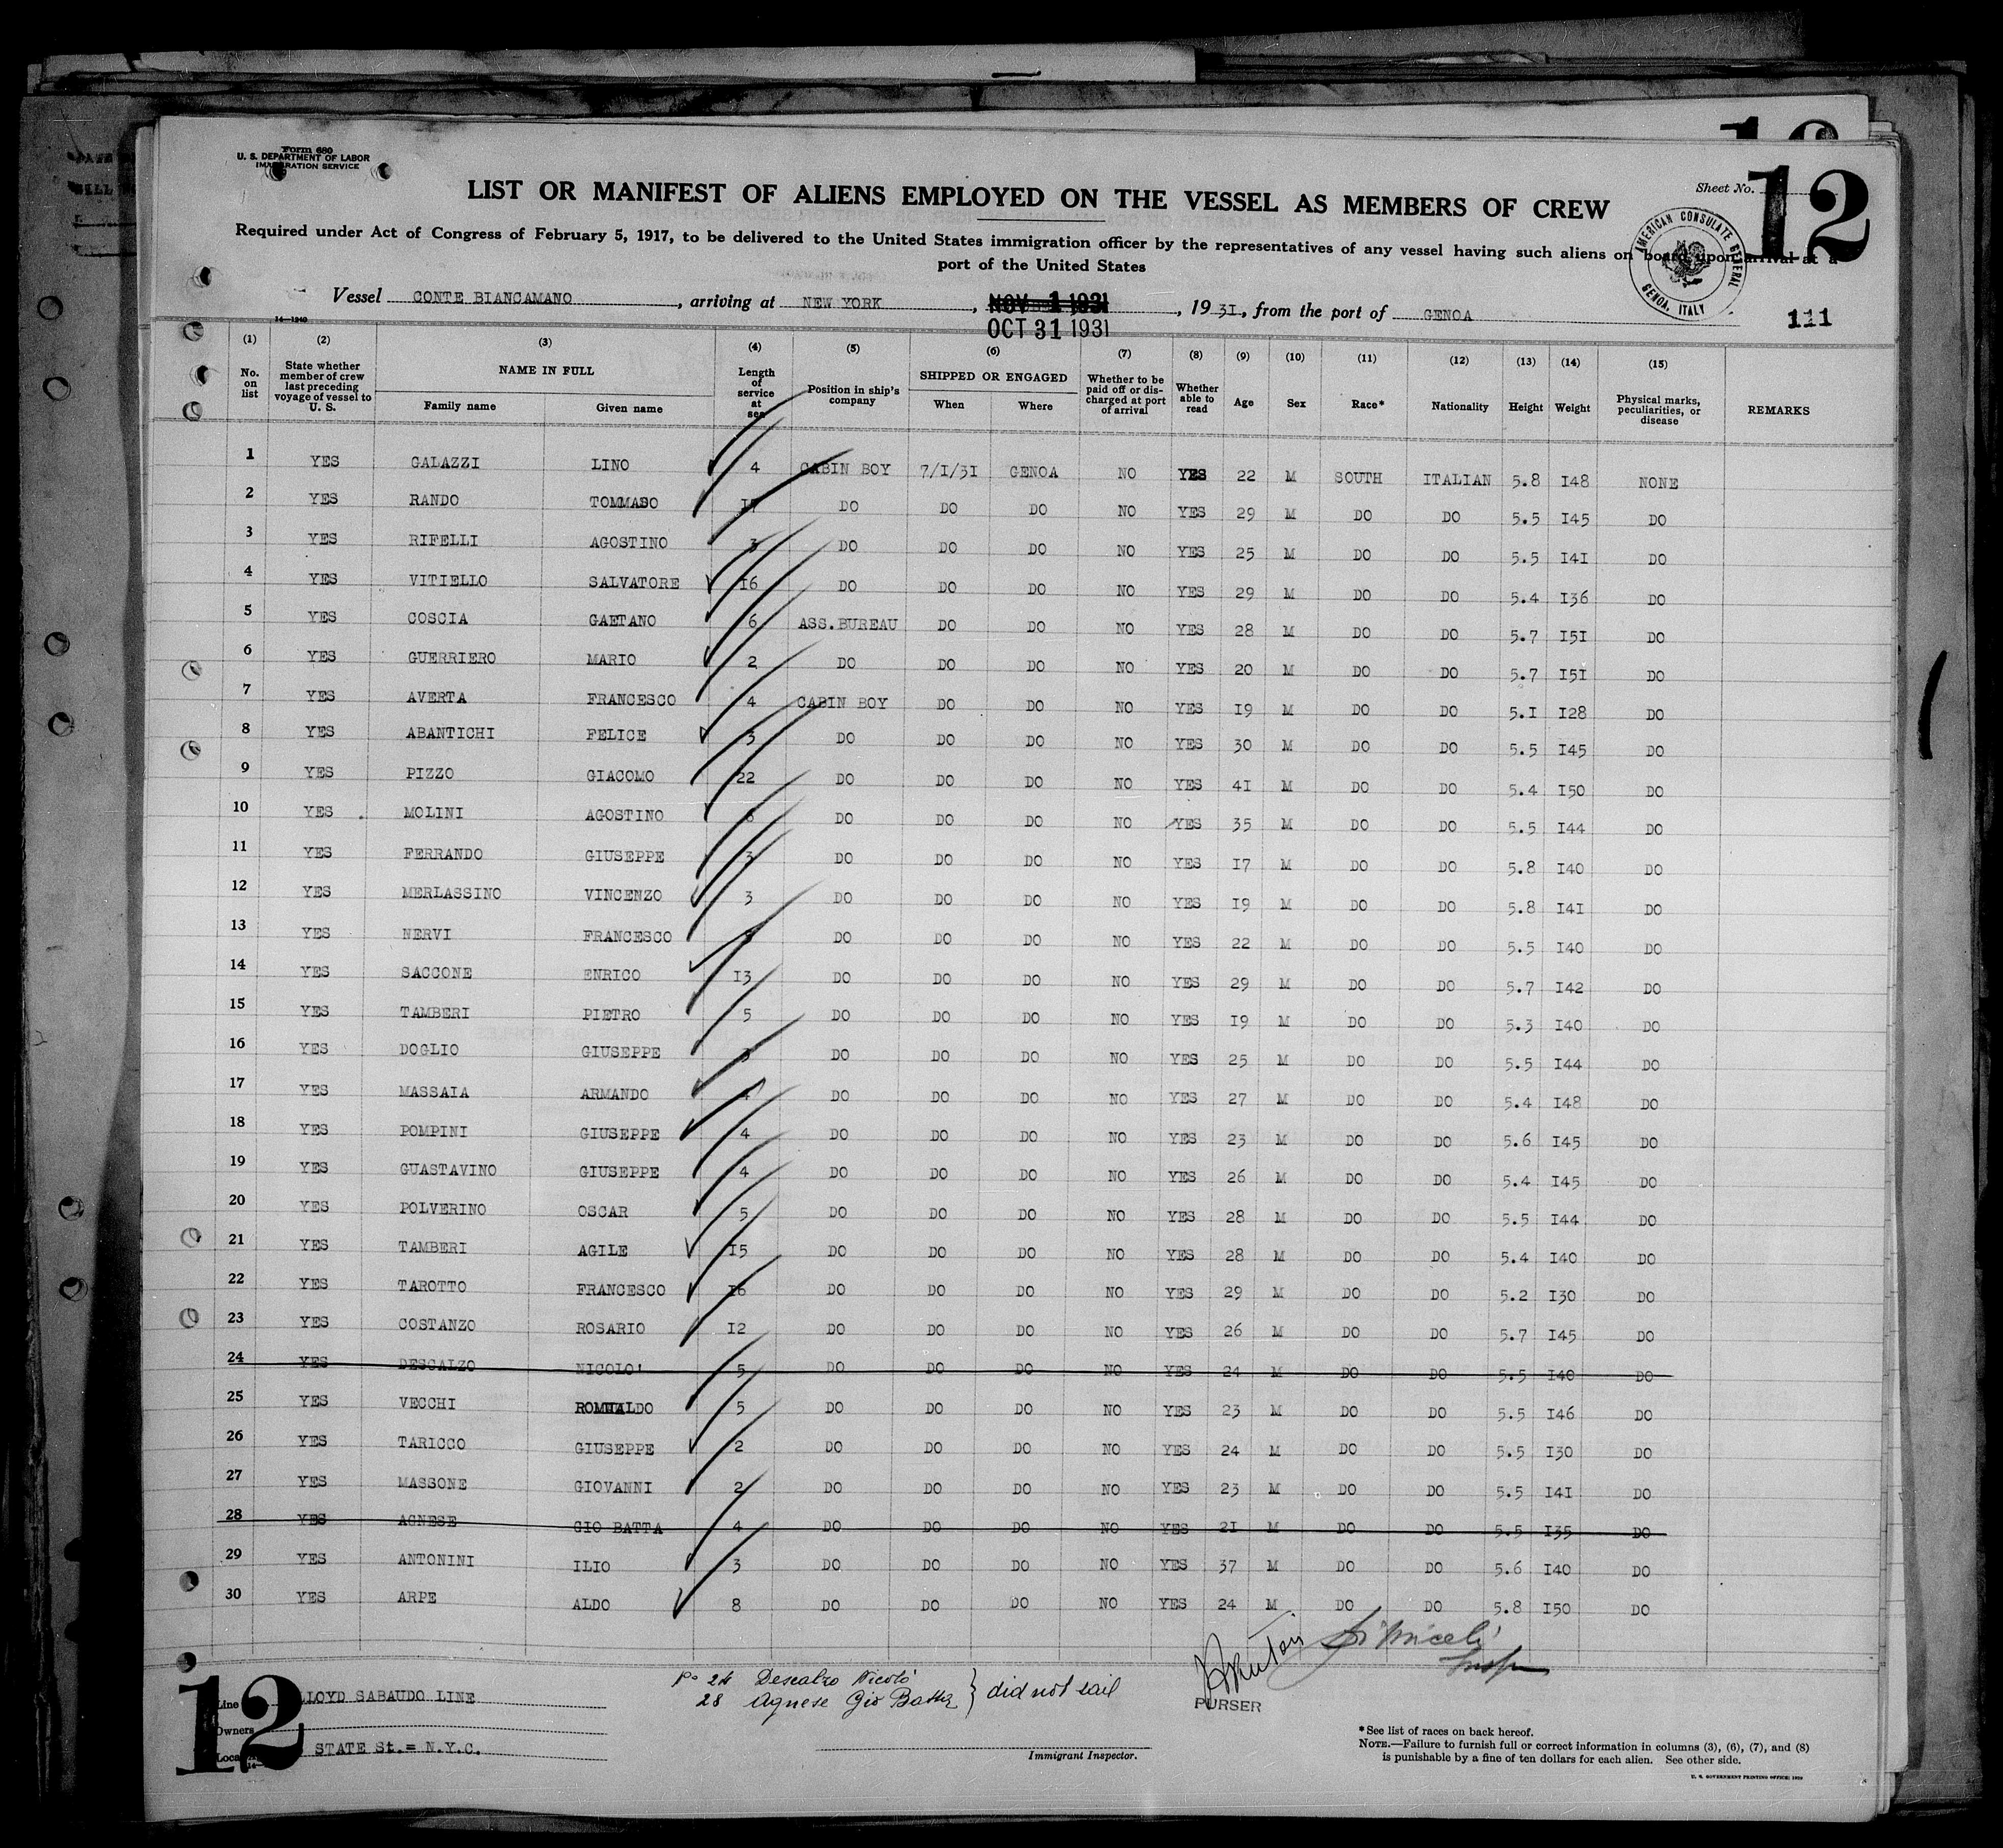 Form 680
U. S. DEPARTMENT OF LABOR
IMMIGRATION SERVICE
Sheet No. 12
LIST OR MANIFEST OF ALIENS EMPLOYED ON THE VESSEL AS MEMBERS OF CREW
Required under Act of Congress of February 5, 1917, to be delivered to the United States immigration officer by the representatives of any vessel having such aliens on board upon arrival at a
port of the United States
AMERICAN CONSULATE GENERAL GENOA, ITALY
Vessel CONTE BIANCAMANO, arriving at NEW YORK, NOV 1 1931, 1931, from the port of GENOA
OCT 31 1931
111
14-1940
(1) (2) (3) (4) (5) (6) (7) (8) (9) (10) (11) (12) (13) (14) (15)
No. on list State whether member of crew last preceding voyage of vessel to U. S. NAME IN FULL Family name Given name Length of service at sea Position in ship's company SHIPPED OR ENGAGED When Where Whether to be paid off or discharged at port of arrival Whether able to read Age Sex Race* Nationality Height Weight Physical marks, peculiarities, or disease REMARKS
1 YES GALAZZI LINO 4 CABIN BOY 7/I/31 GENOA NO YES 22 M SOUTH ITALIAN 5.8 I48 NONE
2 YES RANDO TOMMASO DO DO DO NO YES 29 M DO DO 5.5 I45 DO
3 YES RIFELLI AGOSTINO 3 DO DO DO NO YES 25 M DO DO 5.5 I4I DO
4 YES VITIELLO SALVATORE I6 DO DO DO NO YES 29 M DO DO 5.4 I36 DO
5 YES COSCIA GAETANO 6 ASS.BUREAU DO DO NO YES 28 M DO DO 5.7 I5I DO
6 YES GUERRIERO MARIO 2 DO DO DO NO YES 20 M DO DO 5.7 I5I DO
7 YES AVERTA FRANCESCO 4 CABIN BOY DO DO NO YES I9 M DO DO 5.I I28 DO
8 YES ABANTICHI FELICE 3 DO DO DO NO YES 30 M DO DO 5.5 I45 DO
9 YES PIZZO GIACOMO 22 DO DO DO NO YES 4I M DO DO 5.4 I50 DO
10 YES MOLINI AGOSTINO DO DO DO NO YES 35 M DO DO 5.5 I44 DO
11 YES FERRANDO GIUSEPPE 3 DO DO DO NO YES I7 M DO DO 5.8 I40 DO
12 YES MERLASSINO VINCENZO 3 DO DO DO NO YES I9 M DO DO 5.8 I4I DO
13 YES NERVI FRANCESCO DO DO DO NO YES 22 M DO DO 5.5 I40 DO
14 YES SACCONE ENRICO I3 DO DO DO NO YES 29 M DO DO 5.7 I42 DO
15 YES TAMBERI PIETRO 5 DO DO DO NO YES I9 M DO DO 5.3 I40 DO
16 YES DOGLIO GIUSEPPE DO DO DO NO YES 25 M DO DO 5.5 I44 DO
17 YES MASSAIA ARMANDO DO DO DO NO YES 27 M DO DO 5.4 I48 DO
18 YES POMPINI GIUSEPPE 4 DO DO DO NO YES 23 M DO DO 5.6 I45 DO
19 YES GUASTAVINO GIUSEPPE 4 DO DO DO NO YES 26 M DO DO 5.4 I45 DO
20 YES POLVERINO OSCAR 5 DO DO DO NO YES 28 M DO DO 5.5 I44 DO
21 YES TAMBERI AGILE I5 DO DO DO NO YES 28 M DO DO 5.4 I40 DO
22 YES TAROTTO FRANCESCO I6 DO DO DO NO YES 29 M DO DO 5.2 I30 DO
23 YES COSTANZO ROSARIO I2 DO DO DO NO YES 26 M DO DO 5.7 I45 DO
24 YES DESCALZO NICOLO' 5 DO DO DO NO YES 24 M DO DO 5.5 I40 DO
25 YES VECCHI ROMUALDO 5 DO DO DO NO YES 23 M DO DO 5.5 I46 DO
26 YES TARICCO GIUSEPPE 2 DO DO DO NO YES 24 M DO DO 5.5 I30 DO
27 YES MASSONE GIOVANNI 2 DO DO DO NO YES 23 M DO DO 5.5 I4I DO
28 YES AGNESE GIO BATTA 4 DO DO DO NO YES 2I M DO DO 5.5 I35 DO
29 YES ANTONINI ILIO 3 DO DO DO NO YES 37 M DO DO 5.6 I40 DO
30 YES ARPE ALDO 8 DO DO DO NO YES 24 M DO DO 5.8 I50 DO
12
Line LLOYD SABAUDO LINE
Owners
STATE St.= N.Y.C.
24 Descalzo Nicolò
28 Agnese Gio Batta } did not sail
PURSER
Immigrant Inspector.
*See list of races on back hereof.
NOTE.—Failure to furnish full or correct information in columns (3), (6), (7), and (8)
is punishable by a fine of ten dollars for each alien. See other side.
U. S. GOVERNMENT PRINTING OFFICE: 1929